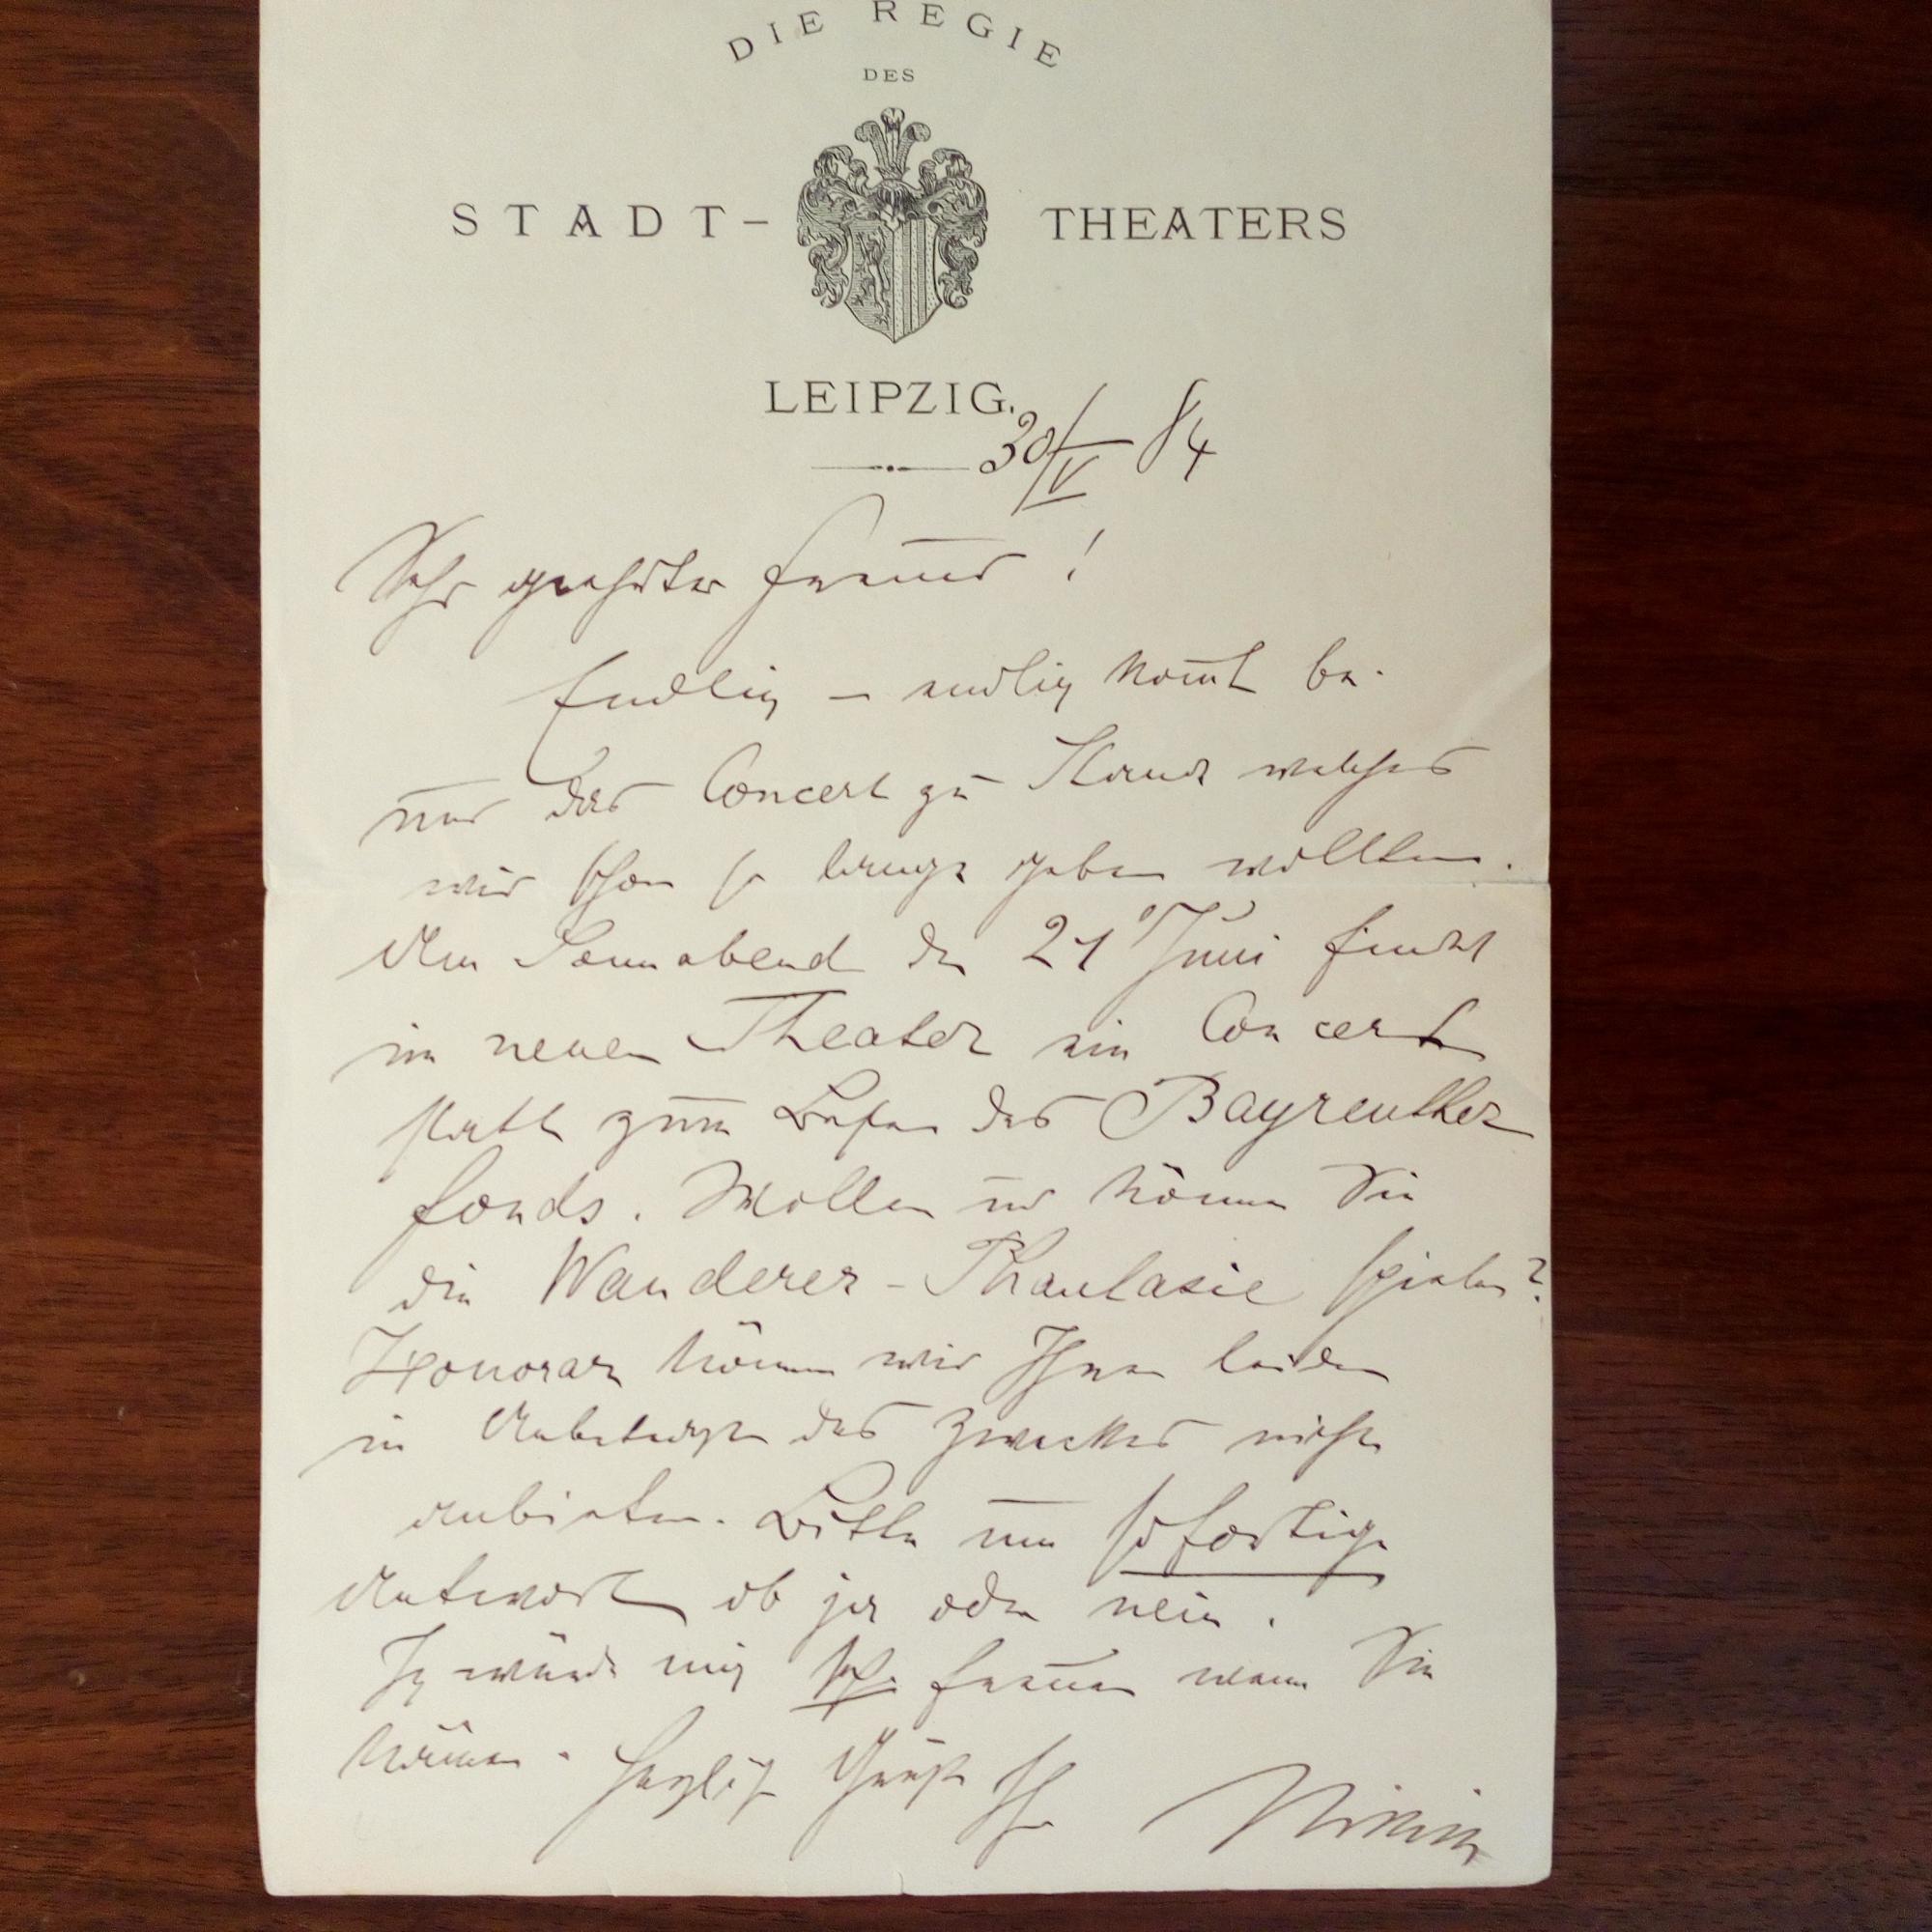 DIE REGIE
DES
STADT-THEATERS
LEIPZIG.
30/V 84
Sehr geehrter Freund!
Endlich – endlich kom̄t
das Concert zu Stande welches
wir schon so lange geben wollten.
Am Sonnabend den 21 Juni findet
im neuen Theater ein Concert
statt zum Besten des Bayreuther
fonds. Wollen und können Sie
die Wanderer-Phantasie spielen?
Honorar können wir Ihnen leider
in Anbetracht des Zweckes nicht
anbieten. Bitte um sofortige
Antwort ob ja oder nein.
Ich würde mich sehr freuen wenn Sie
können. Herzlich Grüßt Ihr Nikisch